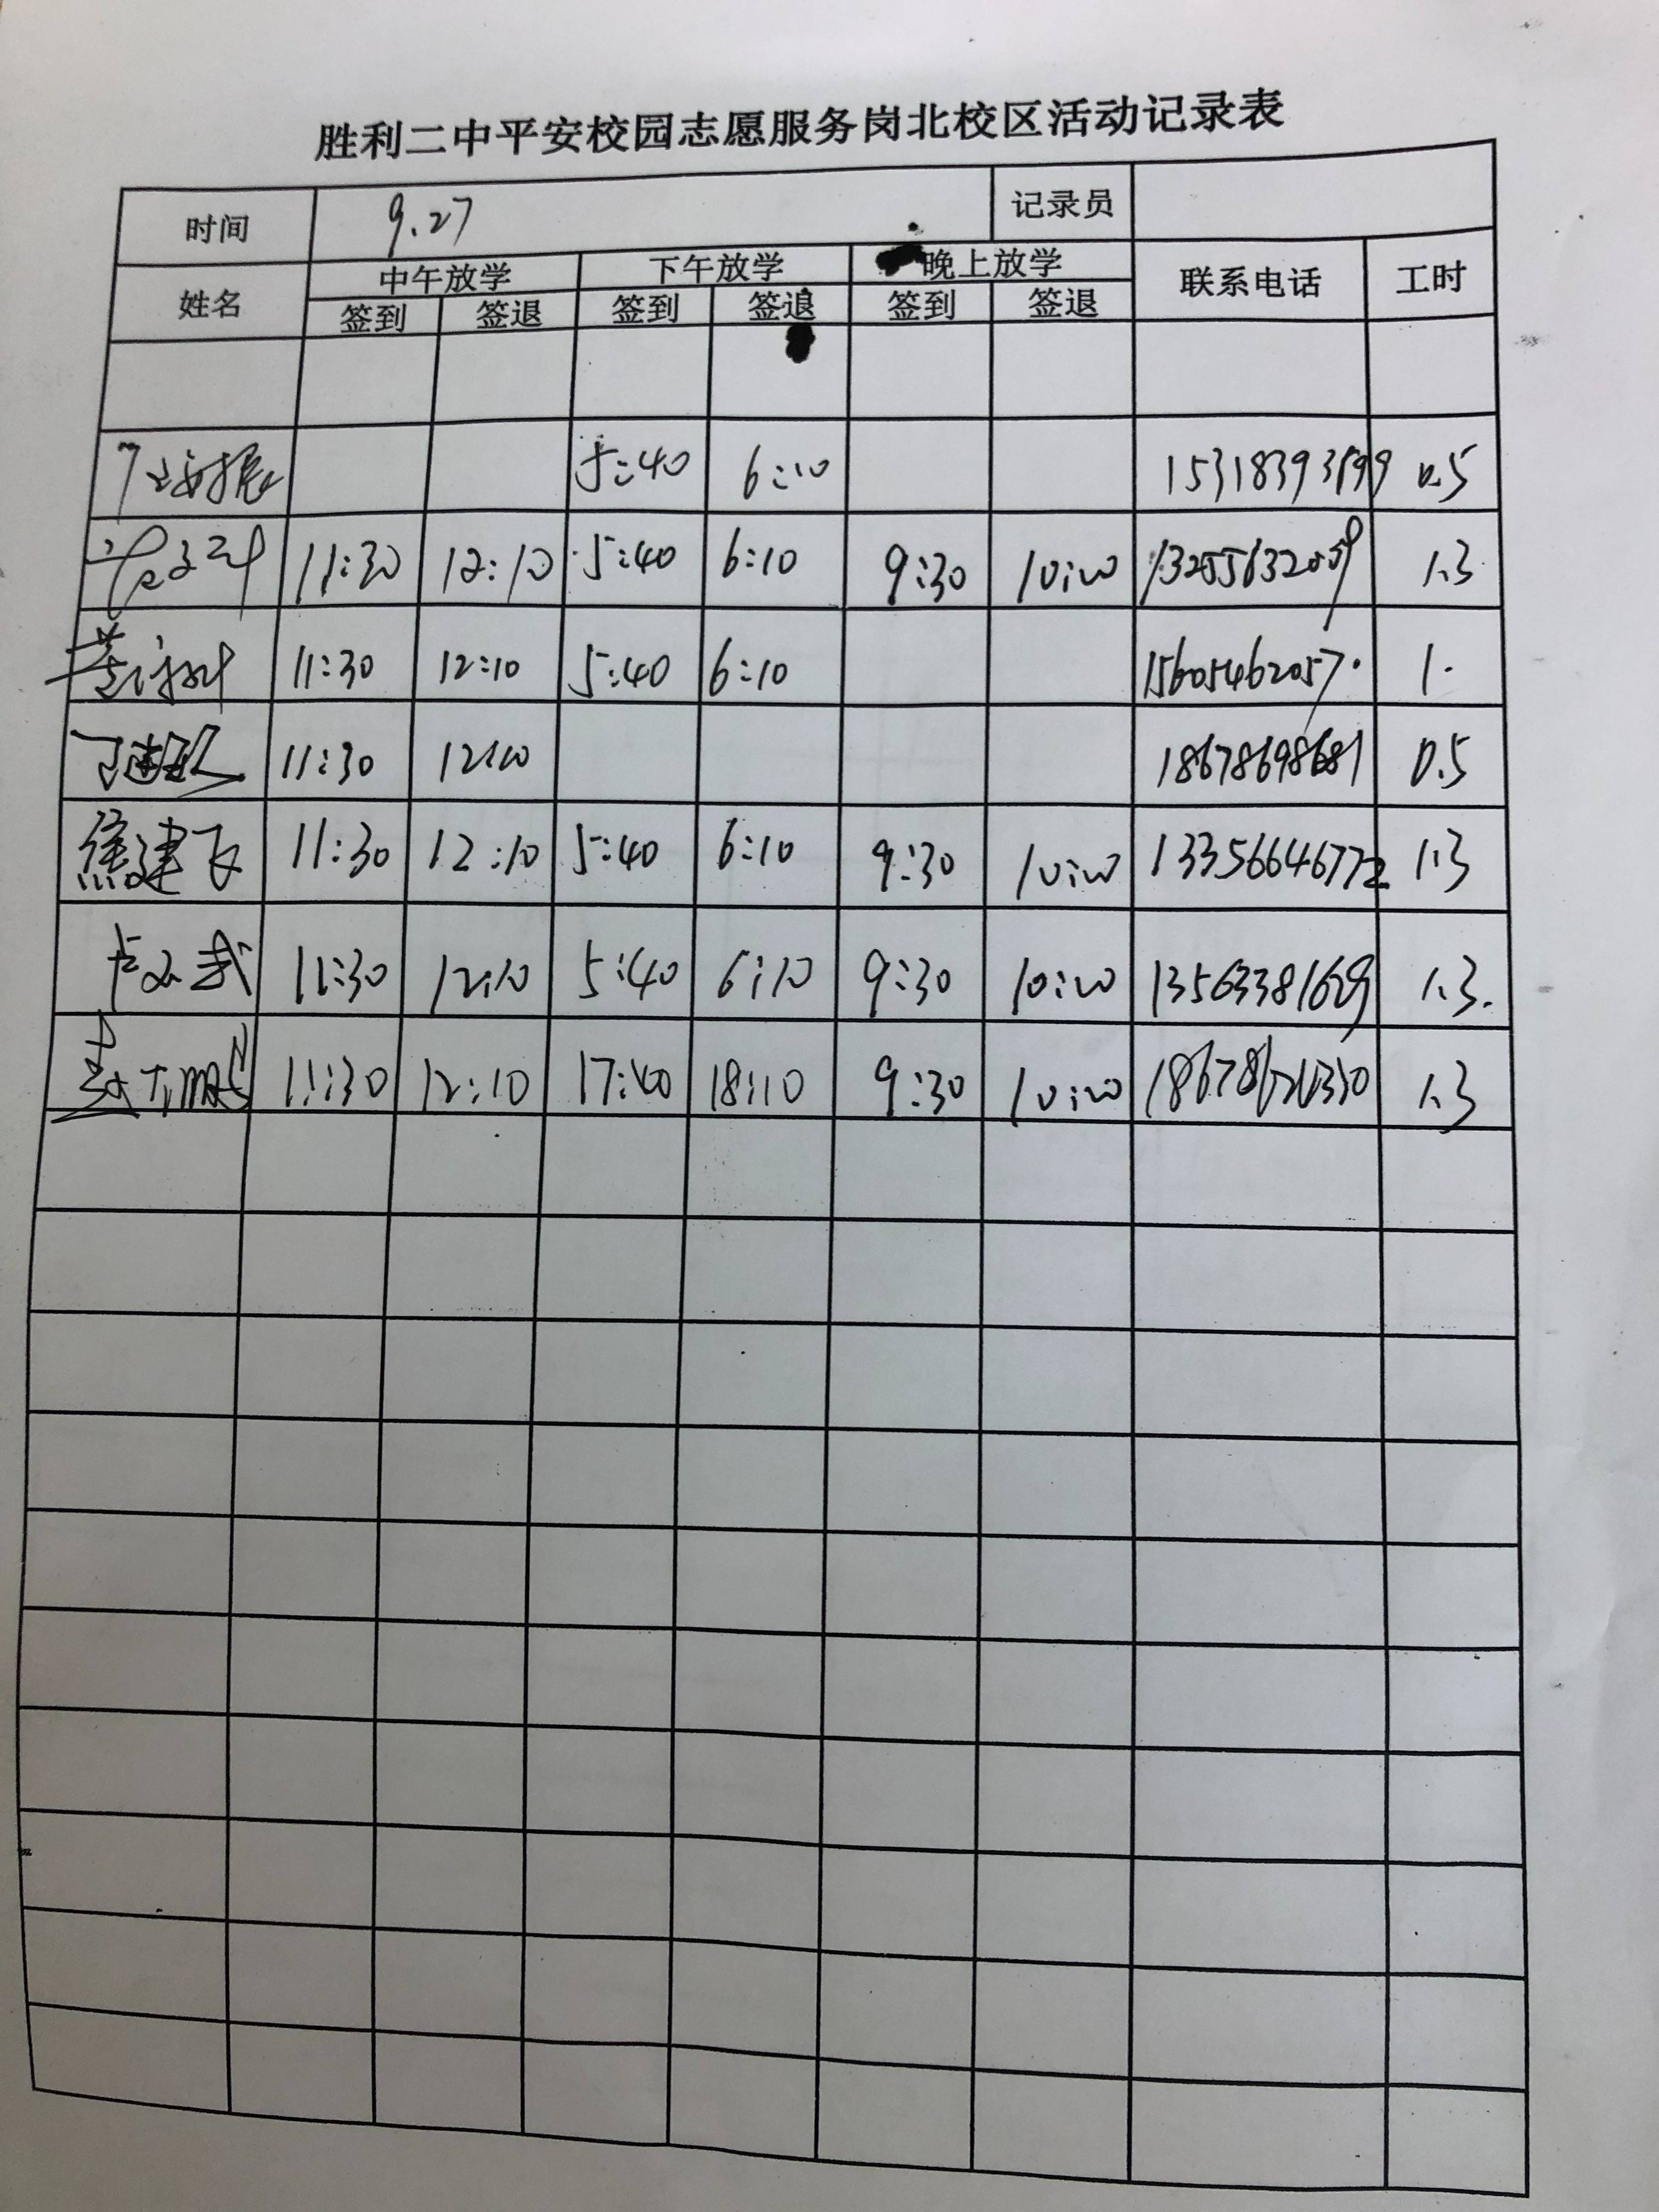 胜利二中平安校园志愿服务岗北校区活动记录表
时间 9.27 记录员
姓名 中午放学 下午放学 晚上放学 联系电话 工时
签到 签退 签到 签退 签到 签退
5:40 6:10 0.5
11:30 12:10 5:40 6:10 9:30 10:00 1.3
11:30 12:10 5:40 6:10 15605462057 1.
11:30 12:10 18678698681 0.5
焦建飞 11:30 12:10 5:40 6:10 9:30 10:00 13356646772 1.3
11:30 12:10 5:40 6:10 9:30 10:00 13563381629 1.3.
11:30 12:10 17:40 18:10 9:30 10:00 1.3